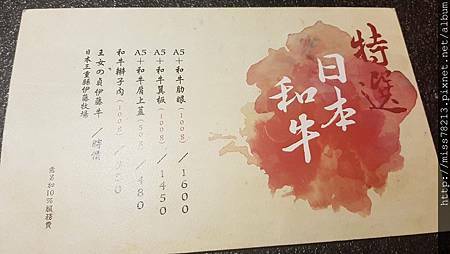 特選
日本
和牛
A5+和牛肋眼(100g)/1600
A5+和牛翼板(100g)/1450
A5+和牛肩上蓋(50g)/480
和牛辮子肉(100g)/
王女の貞伊藤牛/時價
日本三重縣伊藤牧場
需另加10%服務費
http://miss78213.pixnet.net/album